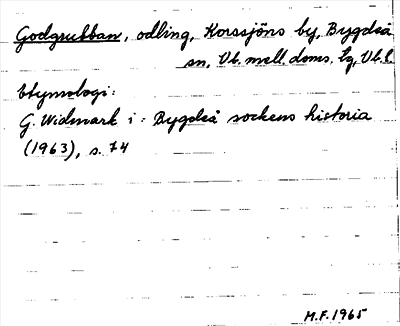 Godgrubban, odling, Korssjöns by, Bygdeå
sn, Vb. mell. doms. tg, Vb. l.
Etymologi:
G. Widmark i: Bygdeå sockens historia
(1963), s. 74
M.F. 1965